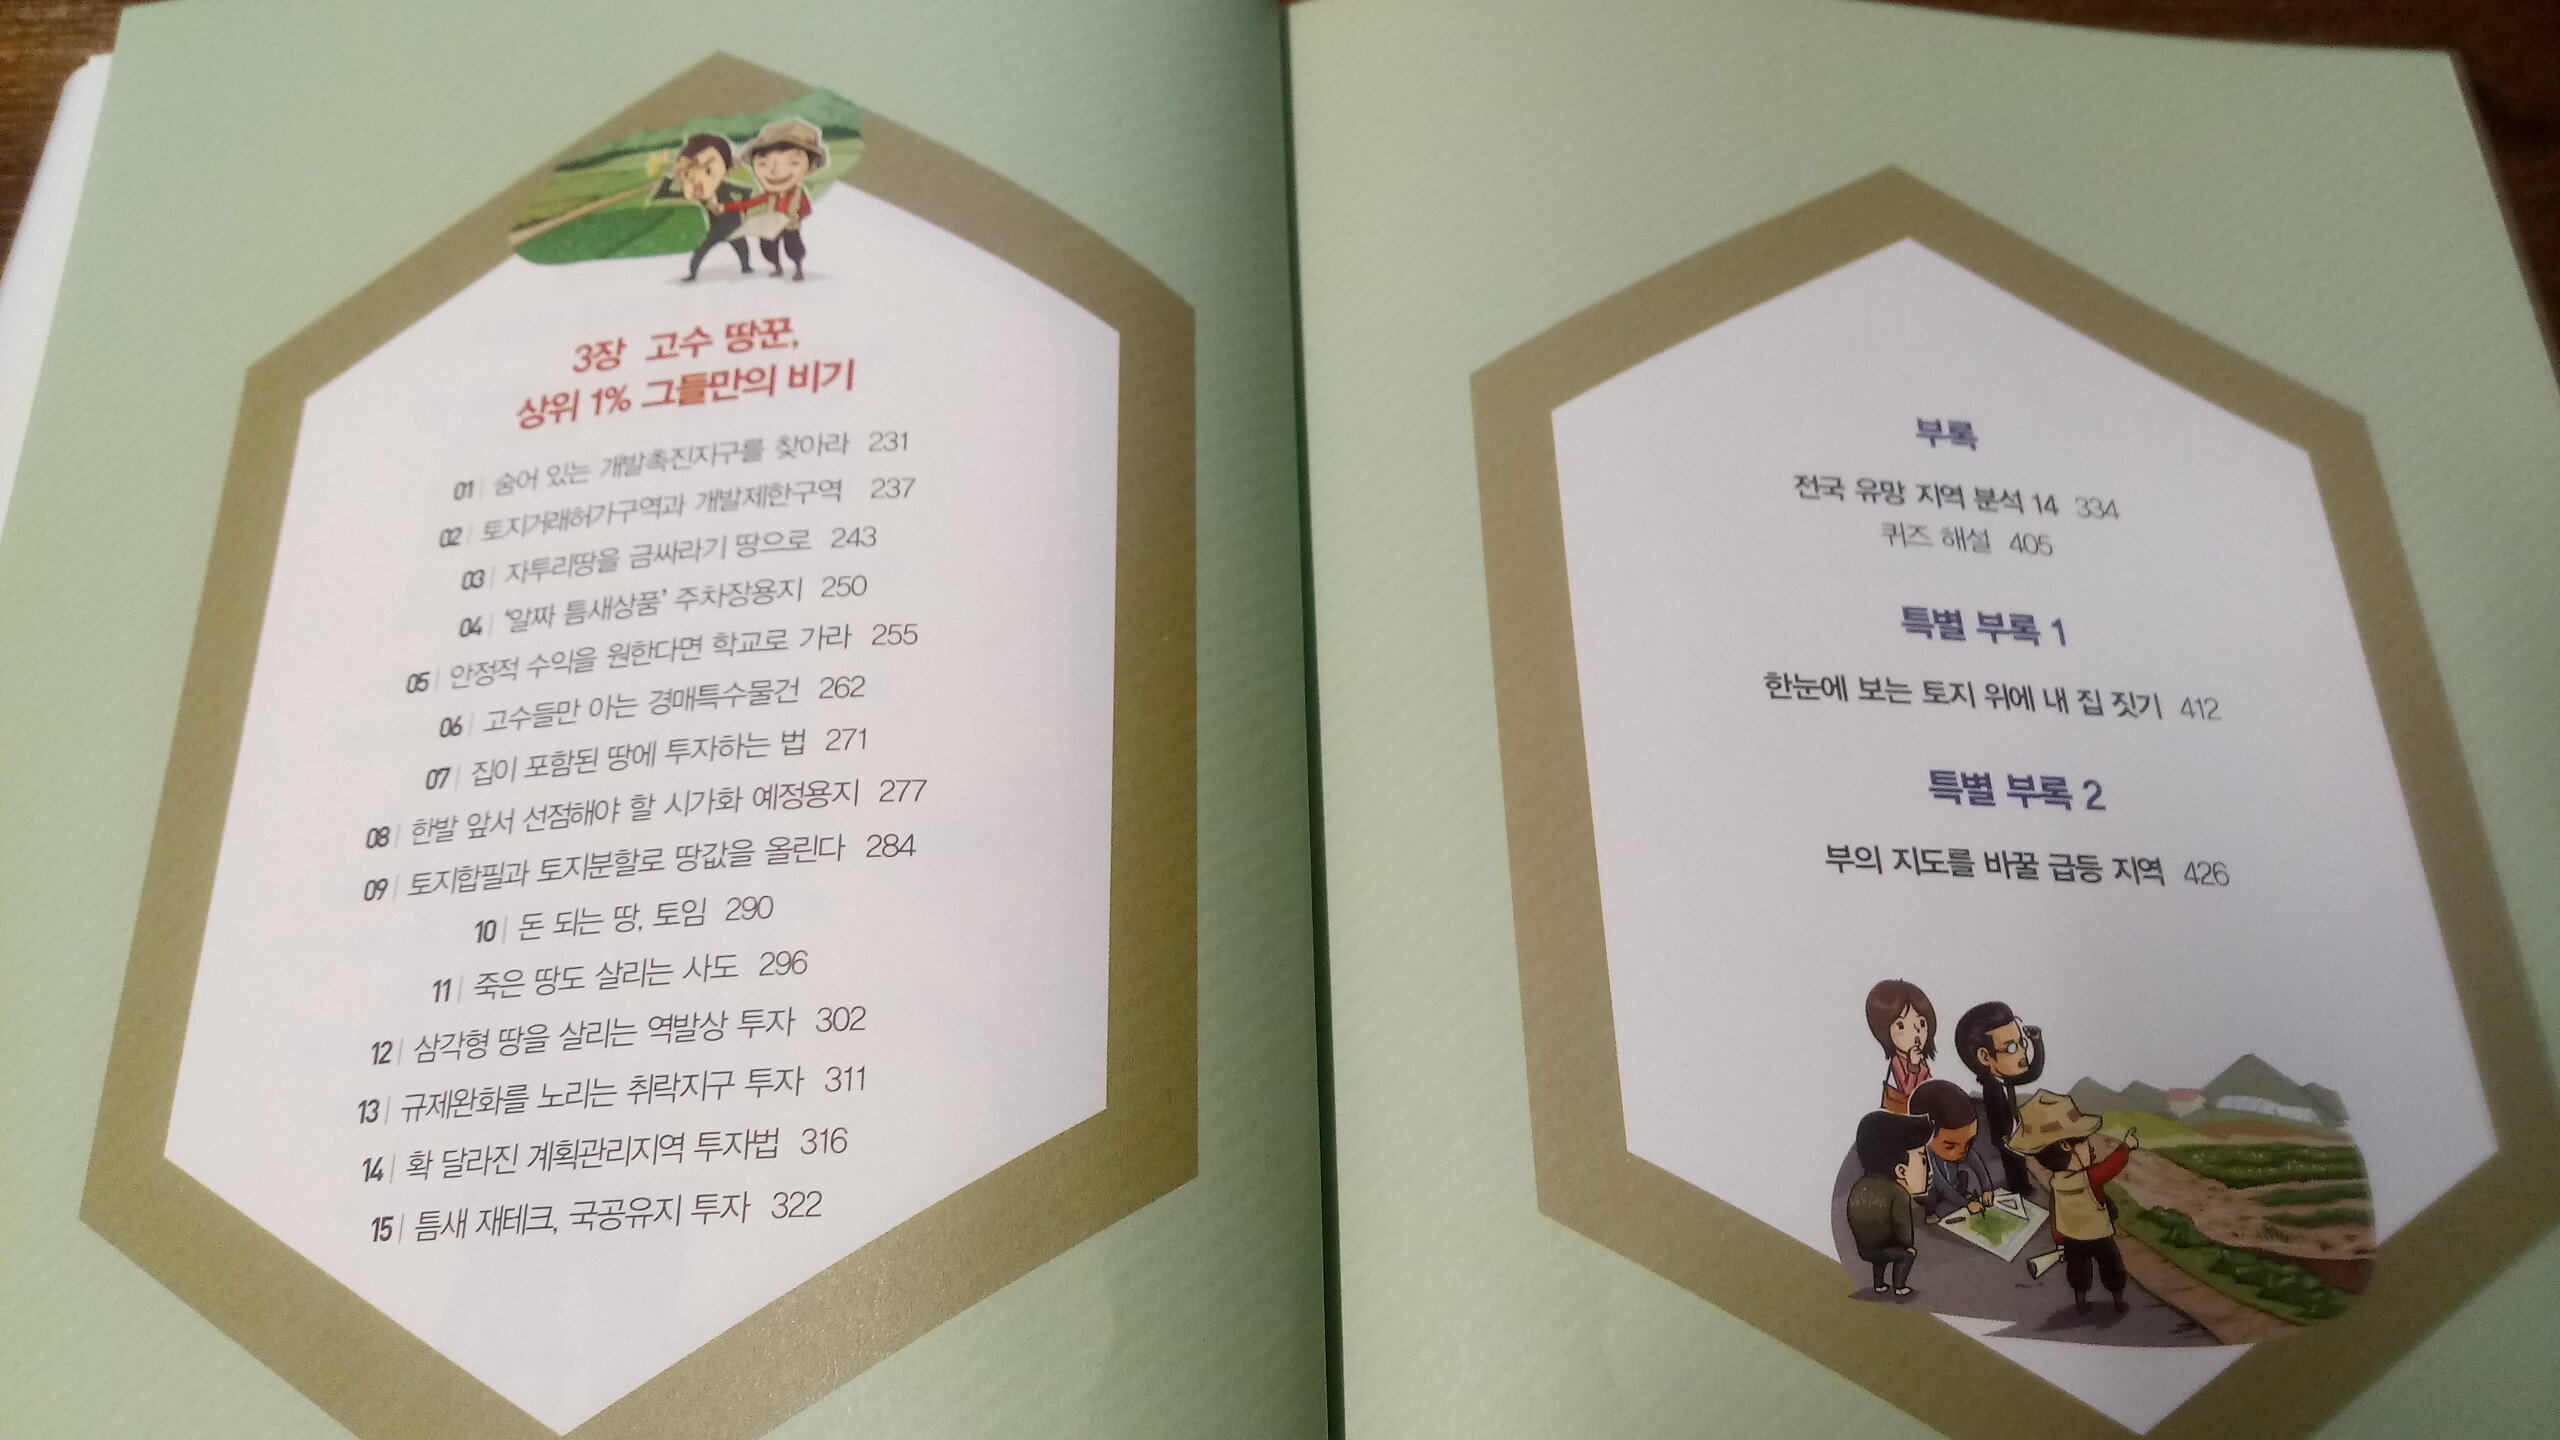 3장 고수 땅꾼,
상위 1% 그들만의 비기
01 | 숨어 있는 개발촉진지구를 찾아라 231
02 | 토지거래허가구역과 개발제한구역 237
03 | 자투리땅을 금싸라기 땅으로 243
04 | '알짜 틈새상품' 주차장용지 250
05 | 안정적 수익을 원한다면 학교로 가라 255
06 | 고수들만 아는 경매특수물건 262
07 | 집이 포함된 땅에 투자하는 법 271
08 | 한발 앞서 선점해야 할 시가화 예정용지 277
09 | 토지합필과 토지분할로 땅값을 올린다 284
10 | 돈 되는 땅, 토임 290
11 | 죽은 땅도 살리는 사도 296
12 | 삼각형 땅을 살리는 역발상 투자 302
13 | 규제완화를 노리는 취락지구 투자 311
14 | 확 달라진 계획관리지역 투자법 316
15 | 틈새 재테크, 국공유지 투자 322
부록
전국 유망 지역 분석 14 334
퀴즈 해설 405
특별 부록 1
한눈에 보는 토지 위에 내 집 짓기 412
특별 부록 2
부의 지도를 바꿀 급등 지역 426